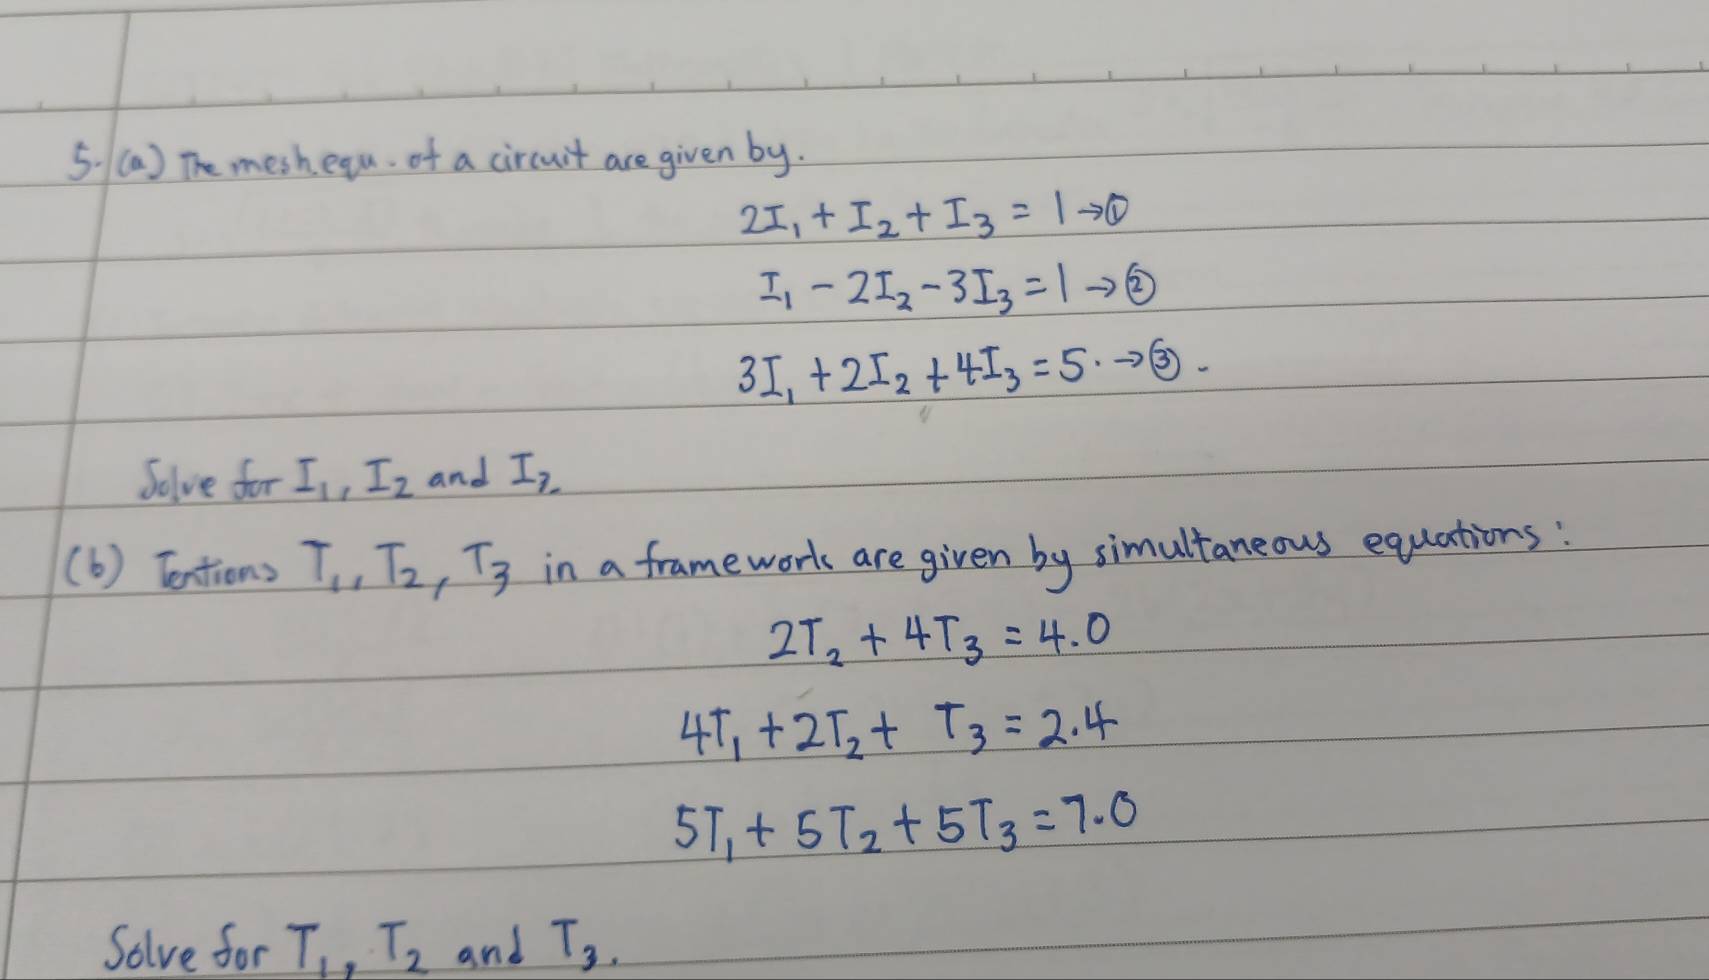 5. (a) The mesh equ. of a circuit are given by.
2I₁ + I₂ + I₃ = 1 → ①
I₁ - 2I₂ - 3I₃ = 1 → ②
3I₁ + 2I₂ + 4I₃ = 5. → ③.
Solve for I₁, I₂ and I₃
(b) Tentions T₁, T₂, T₃ in a framework are given by simultaneous equations:
2T₂ + 4T₃ = 4.0
4T₁ + 2T₂ + T₃ = 2.4
5T₁ + 5T₂ + 5T₃ = 7.0
Solve for T₁, T₂ and T₃.